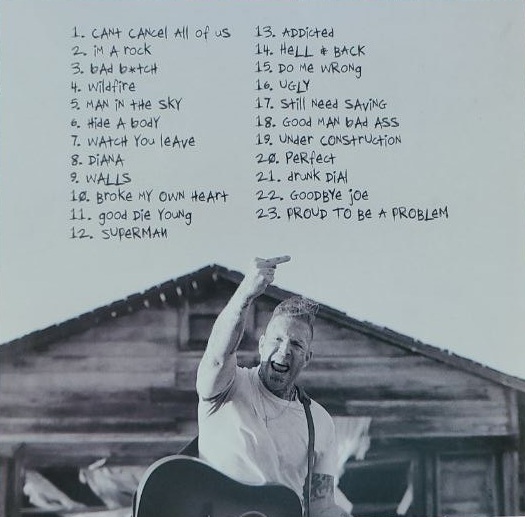 1. CANT CANCEL All of US
2. iM A rock
3. bAd b*tch
4. Wildfire
5. MAN iN tHe SKY
6. Hide A bodY
7. WAtCH YOU leAve
8. DiANA
9. WALLS
10. Broke MY OWN HeArt
11. good Die YouNg
12. SUPeRMAN
13. ADDicted
14. HeLL & BACK
15. DO Me WRONg
16. UgLY
17. Still Need SAviNg
18. Good MAN bAd ASS
19. UNder CONStructioN
20. PeRfect
21. drUNk DiAl
22. GOODBYe joe
23. PROUD TO Be A PROBLeM